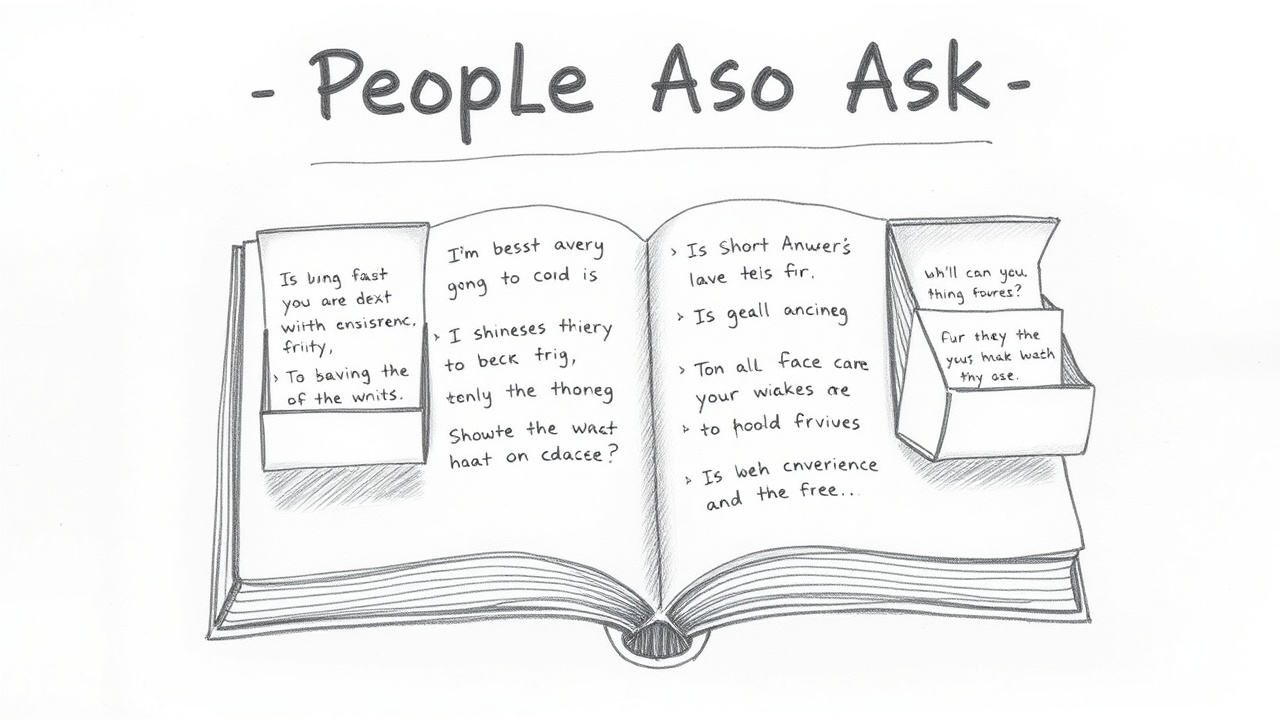 - PeopLe Aso Ask -
Is bing fast
you are dext
wiith ensisrenc,
friity,
› To baving the
of the wnits.
I'm besst avery
gong to cord is
› I shineses thiery
to beck frig,
tenly the thoneg
Showte the wact
haat on cdacee?
› Is Short Anwer's
lave teis fir.
› Is geall ancineg
› Ton all face care
your wiakes are
› to poold frvives
› Is weh cnverience
and the free...
wh'll can you
thing fovres?
Fur they the
yws mak wath
thy ose.